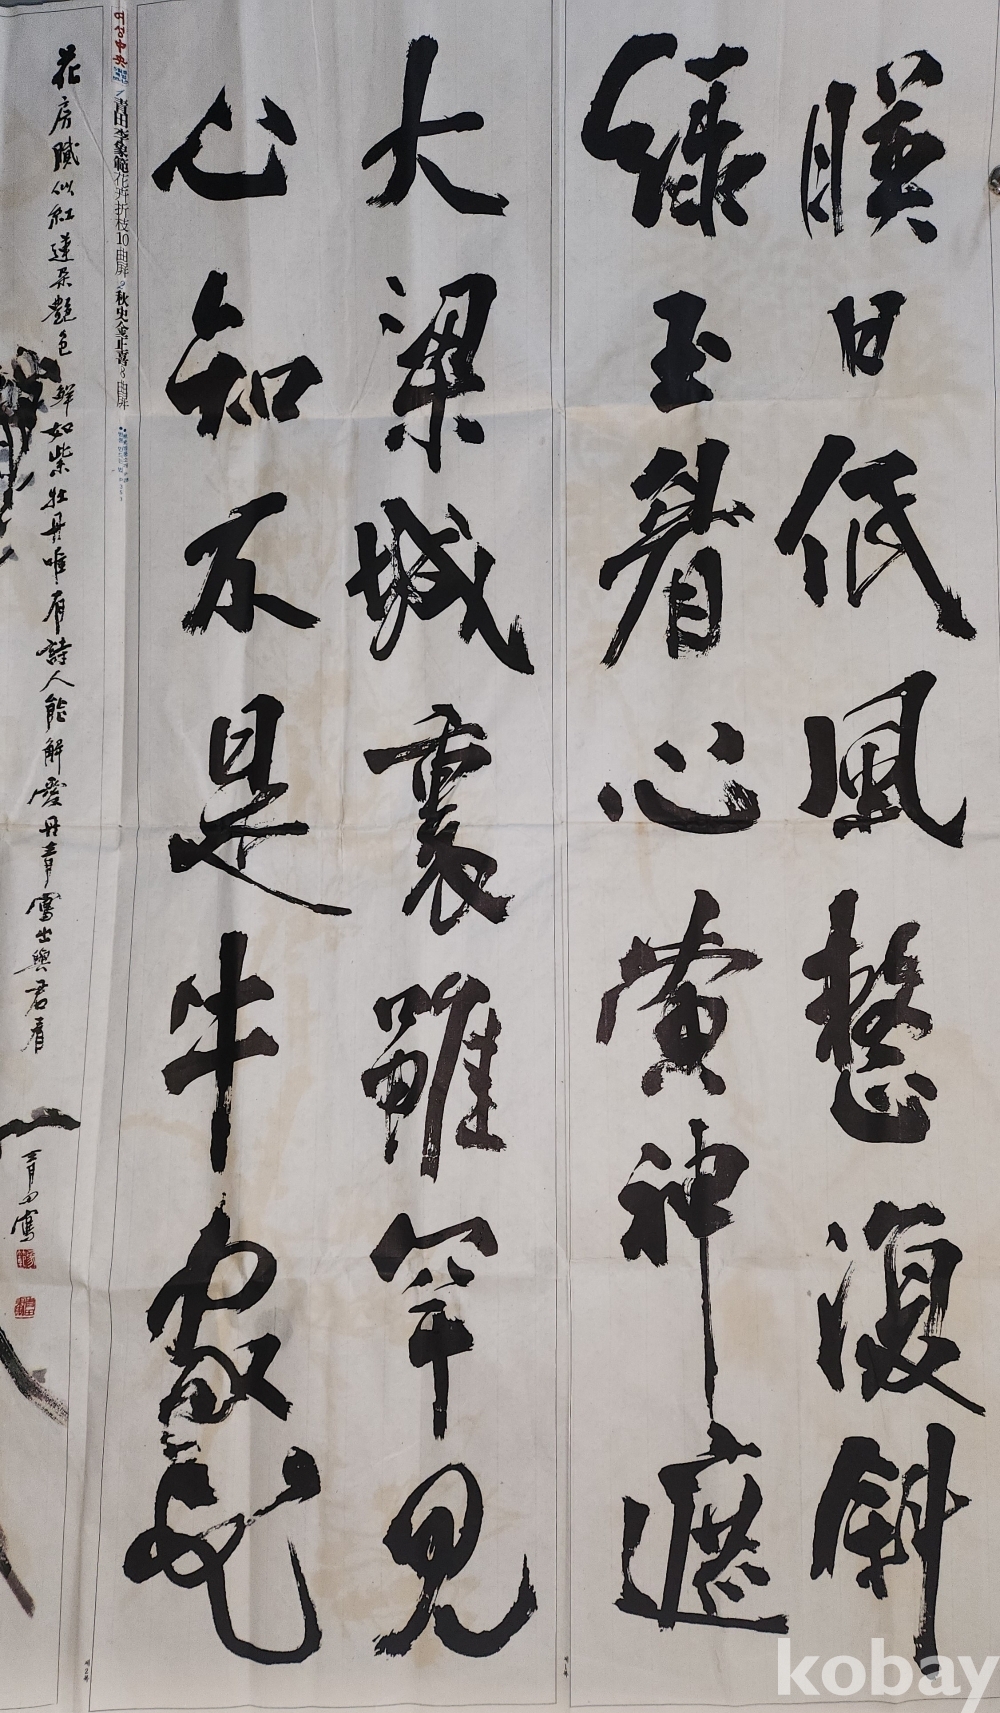 暎日低風整復斜
綠玉眉心黃袖遮
大梁城裏雖罕見
心知不是牛家花
여성中央
青田李象範花卉折枝10曲屛 秋史金正喜 8曲屛
花房膩似紅蓮朵艶色鮮如紫牡丹唯有詩人能解愛丹青寫出與君看
青田寫
kobay